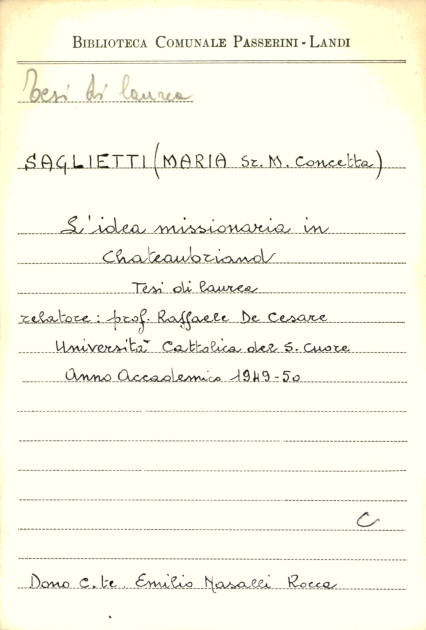 BIBLIOTECA COMUNALE PASSERINI - LANDI
Tesi di laurea
SAGLIETTI (MARIA Sr. M. Concetta)
L'idea missionaria in
Chateaubriand
Tesi di laurea
relatore: prof. Raffaele De Cesare
Università Cattolica del S. Cuore
Anno Accademico 1949-50
C
Dono C.te Emilio Nasalli Rocca